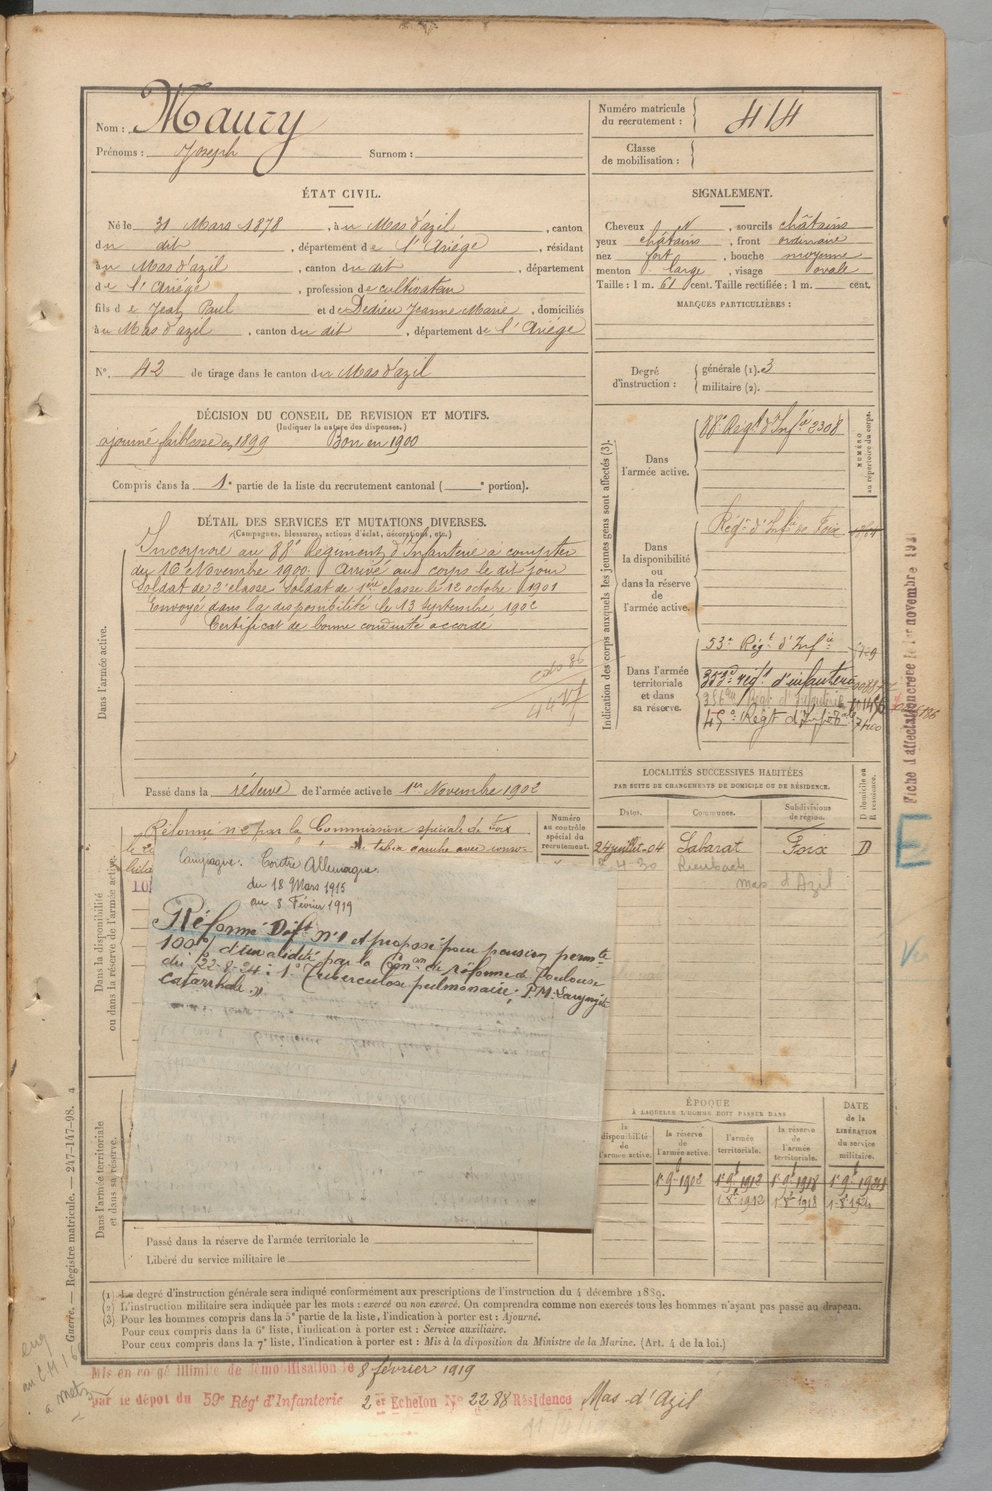 Nom : Maury
Prénoms : Joseph Surnom :
Numéro matricule du recrutement : 414
Classe de mobilisation :
ÉTAT CIVIL.
Né le 31 Mars 1878, à u Mas d'azil, canton
du dit, département de l'Ariége, résidant
à u Mas d'azil, canton du dit, département
de l'Ariége, profession de cultivateur
fils de Jean Paul et de Dedieu Jeanne Marie, domiciliés
à u Mas d'azil, canton du dit, département de l'Ariége
N° 42 de tirage dans le canton du Mas d'azil
SIGNALEMENT.
Cheveux N, sourcils châtains
yeux châtains, front ordinaire
nez fort, bouche moyenne
menton large, visage ovale
Taille : 1 m. 61 cent. Taille rectifiée : 1 m. cent.
MARQUES PARTICULIÈRES :
Degré d'instruction : générale (1). 3
militaire (2).
DÉCISION DU CONSEIL DE REVISION ET MOTIFS.
(Indiquer la nature des dispenses.)
ajourné faiblesse en 1899 Bon en 1900
Compris dans la 1e partie de la liste du recrutement cantonal ( e portion).
DÉTAIL DES SERVICES ET MUTATIONS DIVERSES.
(Campagnes, blessures, actions d'éclat, décorations, etc.)
Dans l'armée active.
Incorporé au 88e Régiment d'Infanterie à compter
du 16 Novembre 1900. Arrivé au corps le dit jour
Soldat de 2e classe Soldat de 1ère classe le 12 octobre 1901
Envoyé dans la disponibilité le 13 Septembre 1902
Certificat de bonne conduite accordé
Passé dans la réserve de l'armée active le 1er Novembre 1902
Indication des corps auxquels les jeunes gens sont affectés (3).
NUMÉRO au répertoire du corps.
Dans l'armée active.
88e Régt d'Infie 2308
Dans la disponibilité ou dans la réserve de l'armée active.
Régt d'Infie de Foix
Dans l'armée territoriale et dans sa réserve.
53e Régt d'Infie
Régt d'infanterie
Régt d'Infanterie
Fiche d'affectation créée le 1er novembre 19
LOCALITÉS SUCCESSIVES HABITÉES
PAR SUITE DE CHANGEMENTS DE DOMICILE OU DE RÉSIDENCE.
Dates. Communes. Subdivisions de région. D domicile ou R résidence.
24 juillet-04 Sabarat Foix D
mas d'Azil
Numéro au contrôle spécial du recrutement.
Dans la disponibilité ou dans la réserve de l'armée active.
Réformé n° 2 par la Commission spéciale de Foix
Campagne : Contre Allemagne.
du 18 Mars 1915
au 8 Février 1919
Réformé Déft n° 1 et proposé pour pension permte
100% d'invalidité par la Con de réforme de Toulouse
du 22-8-24 : 1° Tuberculose pulmonaire ; P.M. Laryngite
catarrhale. »
Dans l'armée territoriale et dans sa réserve.
ÉPOQUE
À LAQUELLE L'HOMME DOIT PASSER DANS
DATE de la LIBÉRATION du service militaire.
la disponibilité de l'armée active. la réserve de l'armée active. l'armée territoriale. la réserve de l'armée territoriale.
Passé dans la réserve de l'armée territoriale le
Libéré du service militaire le
(1) Le degré d'instruction générale sera indiqué conformément aux prescriptions de l'instruction du 4 décembre 1889.
(2) L'instruction militaire sera indiquée par les mots : exercé ou non exercé. On comprendra comme non exercés tous les hommes n'ayant pas passé au drapeau.
(3) Pour les hommes compris dans la 5e partie de la liste, l'indication à porter est : Ajourné.
Pour ceux compris dans la 6e liste, l'indication à porter est : Service auxiliaire.
Pour ceux compris dans la 7e liste, l'indication à porter est : Mis à la disposition du Ministre de la Marine. (Art. 4 de la loi.)
Guerre. — Registre matricule. — 247-147-98.
Mis en congé illimité de démobilisation le 8 février 1919
par le dépôt du 59e Régt d'Infanterie 2er Echelon N° 2288 Résidence Mas d'Azil